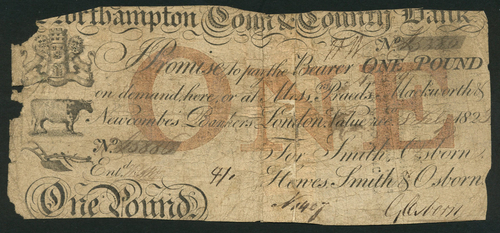 Northampton Town & County Bank
No
I Promise to pay the Bearer ONE POUND
on demand, here, or at Mess.rs Praeds, Mackworth &
Newcombes Bankers London. Value
No
ONE
For Smith, Osborn
Ent.d
Howes Smith & Osborn
One Pound.
GOsborn